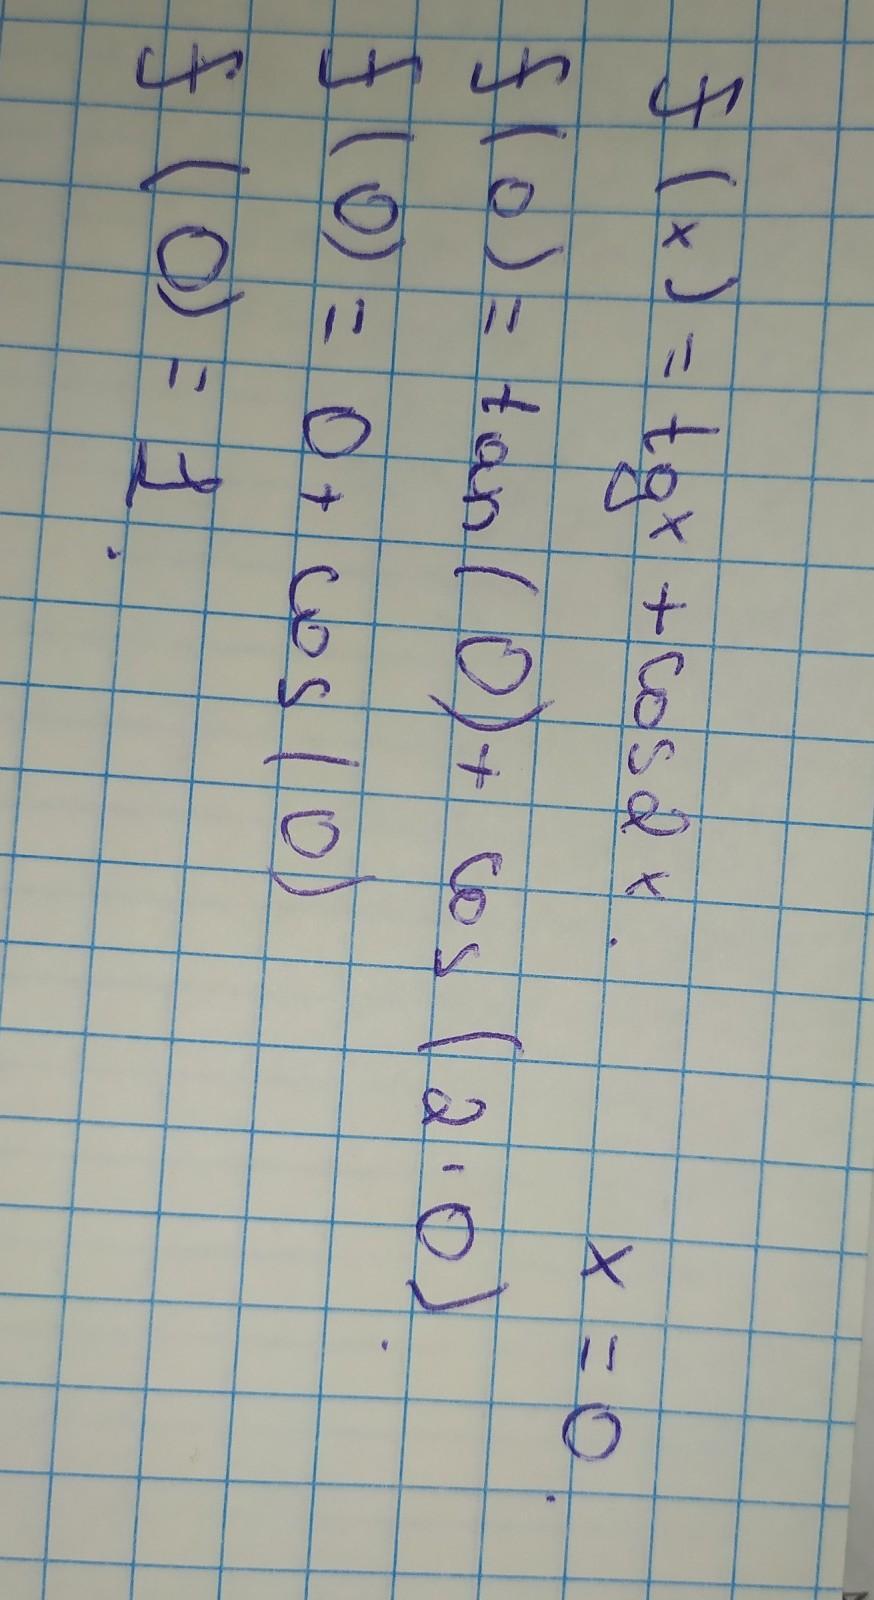 f(x) = tgx + cos2x. x = 0.
f(0) = tan(0) + cos(2·0).
f(0) = 0 + cos(0)
f(0) = 1.